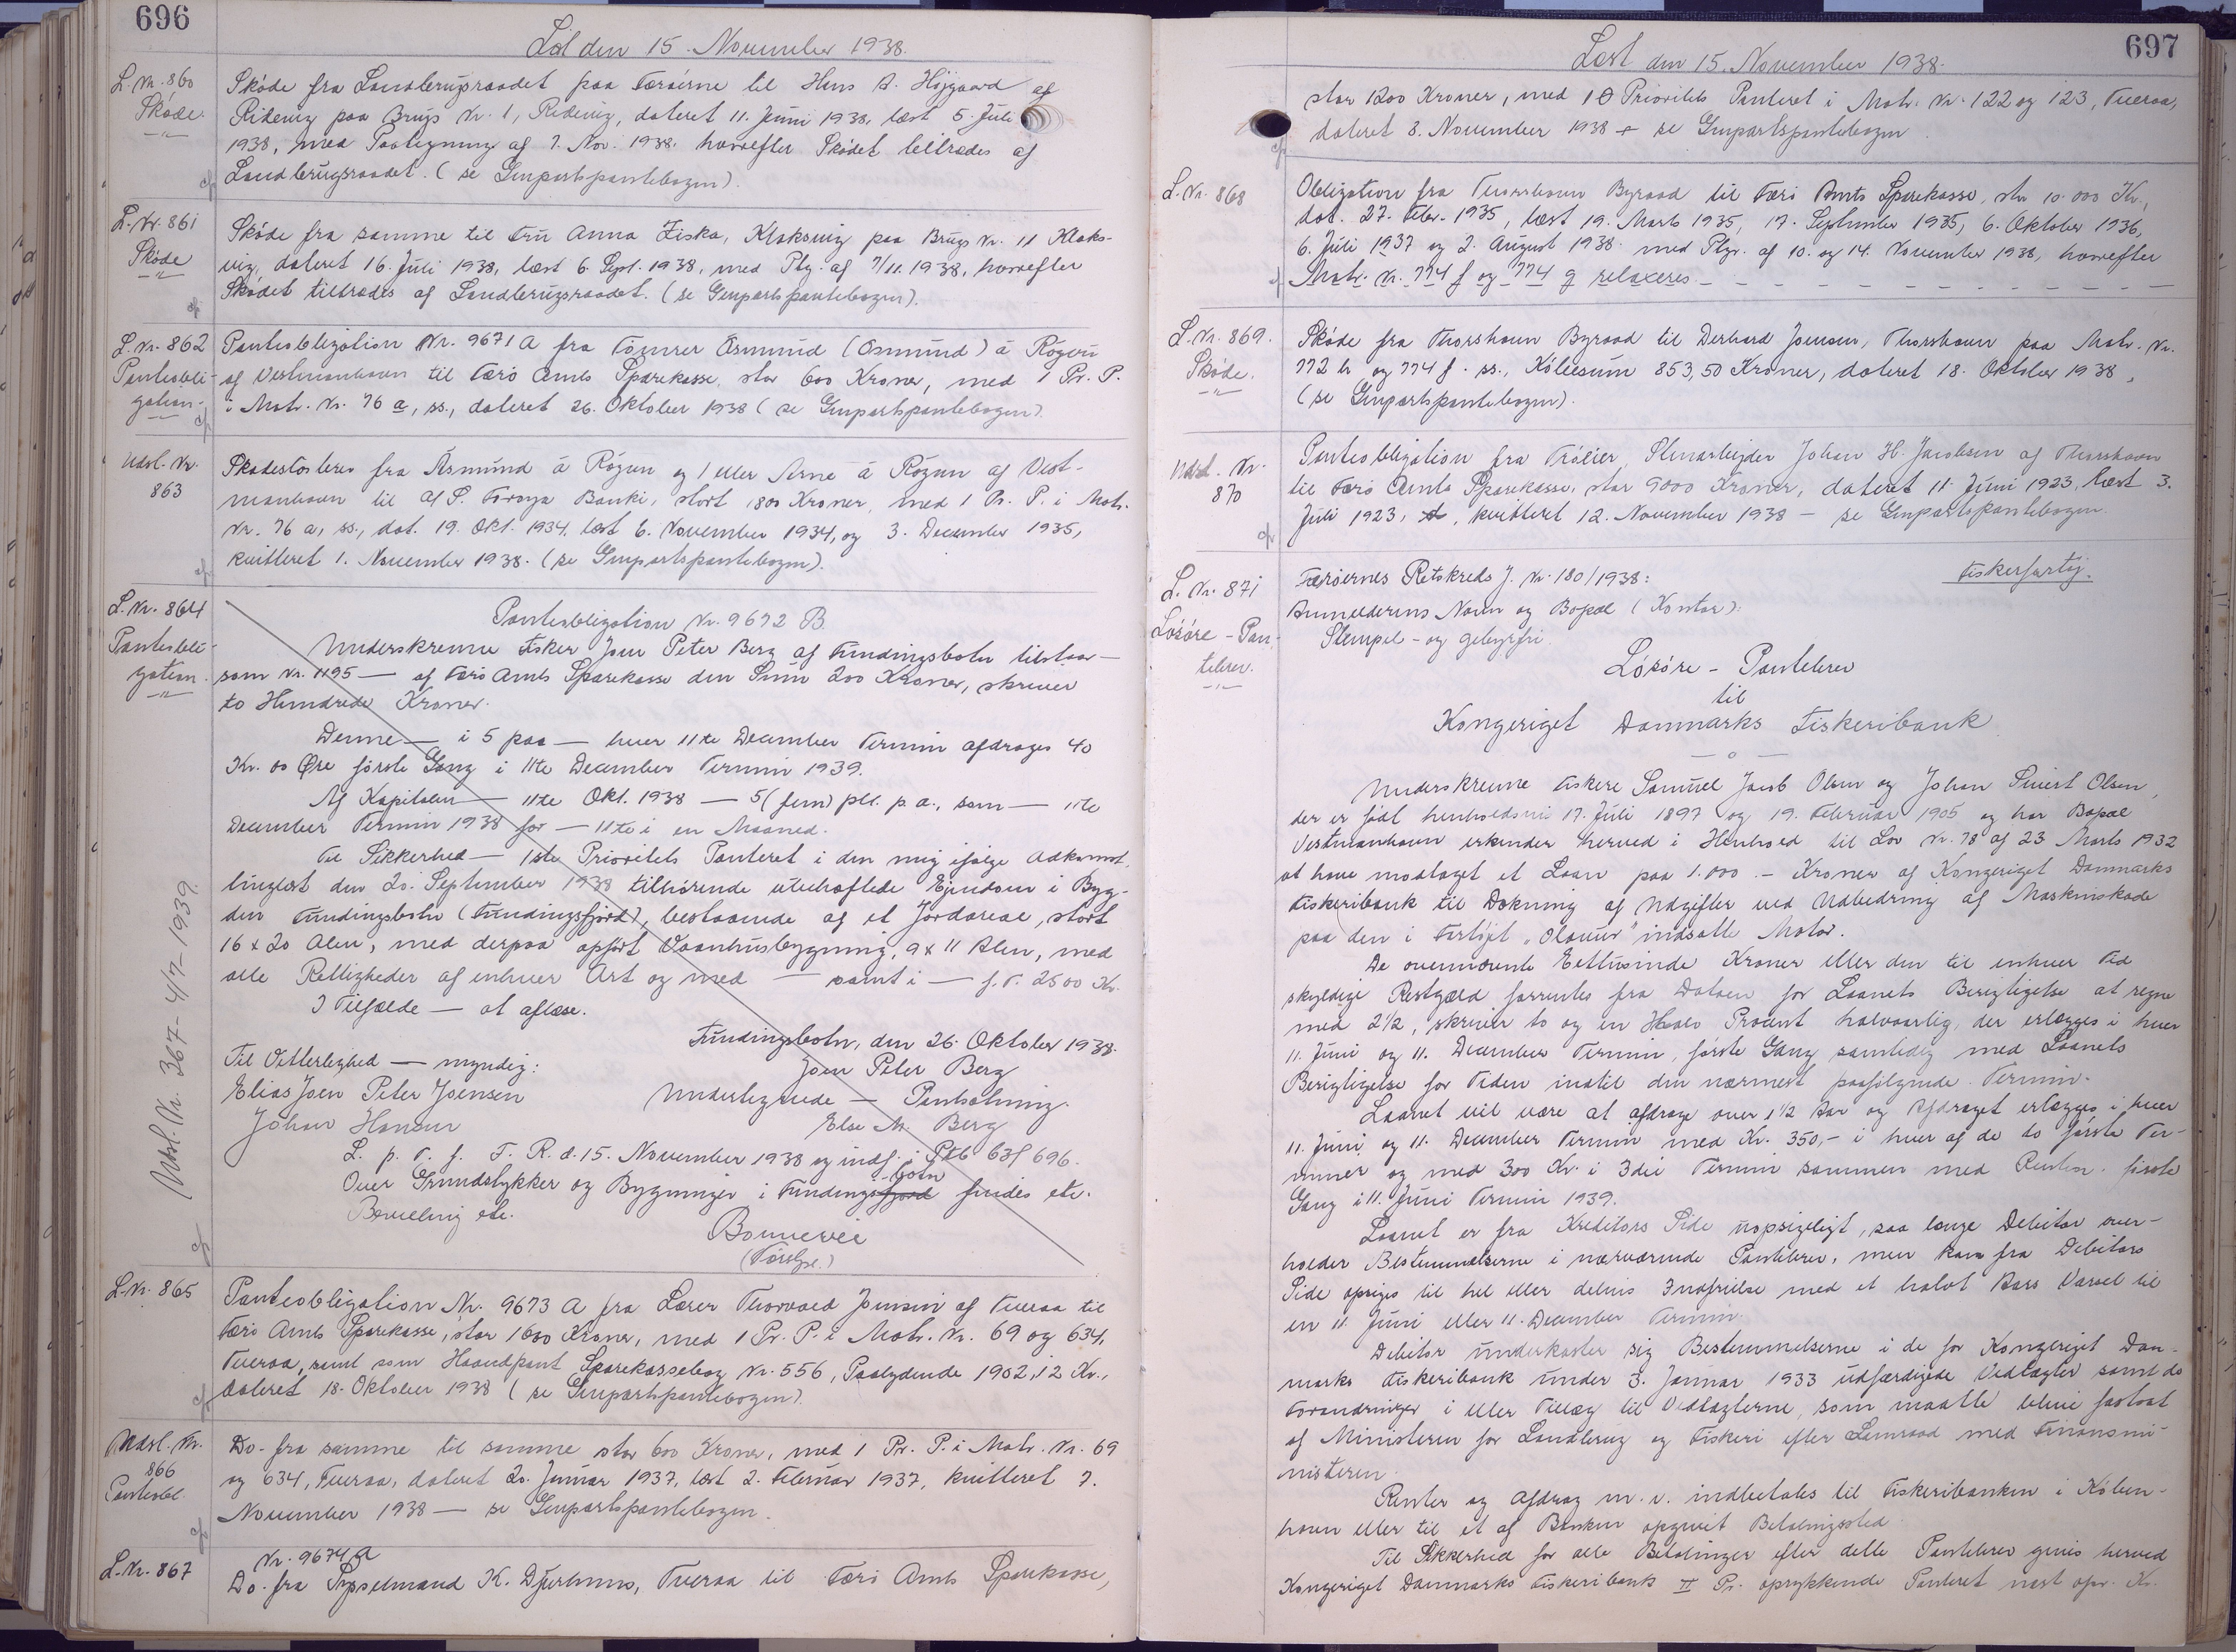 696
Læst den 15. November 1938.
L. Nr. 860
Skøde.
Skøde fra Landbrugsraadet paa Færøerne til Hans A. Højgaard af
Ridevig paa Brugs Nr. 1, Ridevig, dateret 11. Juni 1938, læst 5. Juli
1938, med Paategning af 7. Nov. 1938, hvorefter Skødet tiltrædes af
Landbrugsraadet. (se Genpartspantebogen).
L. Nr. 861
Skøde
Skøde fra samme til Fru Anna Ziska, Klaksvig paa Brugs Nr. 11 Klaks-
vig, dateret 16. Juli 1938, læst 6. Sept. 1938, med Ptg. af 7/11. 1938, hvorefter
Skødet tiltrædes af Landbrugsraadet. (se Genpartspantebogen).
L. Nr. 862
Panteobli-
gation.
Panteobligation Nr. 9671 A fra Tømrer Ørmund (Osmund) á Rógvu
af Vestmanhavn til Færø Amts Sparekasse, stor 600 Kroner, med 1 Pr. P.
i Matr. Nr. 76 a, ss., dateret 26. Oktober 1938 (se Genpartspantebogen).
Udsl. Nr.
863
Skadesløsbrev fra Åsmund á Rógvu og/eller Arne á Rógvu af Vest-
manhavn til A/S. Føroya Banki, stort 1800 Kroner, med 1 Pr. P. i Matr.
Nr. 76 a, ss., dat. 19. Okt. 1934, læst 6. November 1934, og 3. December 1935,
kvitteret 1. November 1938. (se Genpartspantebogen).
L. Nr. 864
Panteobli-
gation.
Panteobligation Nr. 9672 B.
Underskrevne Fisker Joen Peter Berg af Fundingsbotn tilstaar —
som Nr. 1195 — af Færø Amts Sparekasse den Sum 200 Kroner, skriver
to Hundrede Kroner.
Denne — i 5 paa — hver 11te December Termin afdrages 40
Kr. 00 Øre første Gang i 11te December Termin 1939.
Af Kapitalen — 11te Okt. 1938 — 5 (fem) pCt. p. a., som — 11te
December Termin 1938 for — 11te i en Maaned.
Til Sikkerhed — 1ste Prioritets Panteret i den mig ifølge Adkomst
tinglæst den 20. September 1938 tilhørende ubehæftede Ejendom i Byg-
den Fundingsbotn (Fundingsfjord), bestaaende af et Jordareal, stort
16 x 20 Alen, med derpaa opført Vaanhusbygning, 9 x 11 Alen, med
alle Rettigheder af enhver Art og med — samt i — f. T. 2500 Kr.
I Tilfælde — at aflæse.
Fundingsbotn, den 26. Oktober 1938.
Til Vitterlighed — myndig:
Joen Peter Berg
Elias Joen Peter Joensen
Underliggende — Pantsætning.
Johan Hansen
Else M. Berg
L. p. T. f. F. R. d. 15. November 1938 og indf. i Ptb 63f 696.
Over Grundstykker og Bygninger i Fundingsbotn findes etc.
Bevilling etc.
Bonnevie
Udsl. Nr. 367- 4/7- 1939.
L. Nr. 865
Panteobligation Nr. 9673 A fra Lærer Thorvald Joensen af Tveraa til
Færø Amts Sparekasse, stor 1600 Kroner, med 1 Pr. P. i Matr. Nr. 69 og 634,
Tveraa, samt som Haandpant Sparekassebog Nr. 556, Paalydende 1902,12 Kr.,
dateret 18. Oktober 1938 (se Genpartspantebogen).
Udsl. Nr.
866
Panteobl.
Do. fra samme til samme stor 600 Kroner, med 1 Pr. P. i Matr. Nr. 69
og 634, Tveraa, dateret 20. Januar 1937, læst 2. Februar 1937, kvitteret 7.
November 1938 — se Genpartspantebogen.
L. Nr. 867
Nr. 9674 A
Do. fra Sysselmand K. Djurhuus, Tveraa til Færø Amts Sparekasse,
697
Læst den 15. November 1938.
stor 1200 Kroner, med 1 Prioritets Panteret i Matr. Nr. 122 og 123, Tveraa,
dateret 8. November 1938 — se Genpartspantebogen
L. Nr. 868
Obligation fra Thorshavn Byraad til Færø Amts Sparekasse, stor 10.000 Kr.,
dat. 27. Febr. 1935, læst 19. Marts 1935, 17. September 1935, 6. Oktober 1936,
6. Juli 1937 og 2. August 1938 med Ptgr. af 10. og 14. November 1938, hvorefter
Matr. Nr. 774 f og 774 g relaxeres.
L. Nr. 869.
Skøde.
Skøde fra Thorshavn Byraad til Derhard Joensen, Thorshavn paa Matr. Nr.
772 b og 774 f. ss., Købesum 853,50 Kroner, dateret 18. Oktober 1938,
(se Genpartspantebogen).
Udsl. Nr.
870
Panteobligation fra Stenarbejder Johan H. Jacobsen af Thorshavn
til Færø Amts Sparekasse, stor 9000 Kroner, dateret 11. Juni 1923, læst 3.
Juli 1923, kvitteret 12. November 1938 — se Genpartspantebogen.
L. Nr. 871
Løsøre-Pan-
tebrev.
Færøernes Retskreds J. Nr. 180/1938:
Fiskerfartøj.
Anmelderens Navn og Bopæl (Kontor):
Stempel- og gebyrfri
Løsøre - Pantebrev
til
Kongeriget Danmarks Fiskeribank
Underskrevne Fiskere Samuel Jacob Olsen og Johan Sivert Olsen,
der er født henholdsvis 17. Juli 1897 og 19. Februar 1905 og har Bopæl
Vestmanhavn erkender herved i Henhold til Lov Nr. 78 af 23 Marts 1932
at have modtaget et Laan paa 1.000.- Kroner af Kongeriget Danmarks
Fiskeribank til Dækning af Udgifter ved Udbedring af Maskinskade
paa den i Fartøjet "Olavur" indsatte Motor.
De ovennævnte Eettusinde Kroner eller den til enhver Tid
skyldige Restgæld forrentes fra Datoen for Laanets Berigtigelse at regne
med 2½, skriver to og en Halv Procent halvaarlig, der erlægges i hver
11. Juni og 11. December Termin, første Gang samtidig med Laanets
Berigtigelse for Tiden indtil den nærmest paafølgende Termin.
Laanet vil være at afdrage over 1½ Aar og Afdraget erlægges i hver
11. Juni og 11. December Termin med Kr. 350,- i hver af de to første Ter-
miner og med 300 Kr. i 3die Termin sammen med Renten. første
Gang i 11. Juni Termin 1939.
Laanet er fra Kreditors Side uopsigeligt, saa længe Debitor over-
holder Bestemmelserne i nærværende Pantebrev, men kan fra Debitors
Side opsiges til hel eller delvis Indfrielse med et halvt Aars Varsel til
en 11. Juni eller 11. December Termin.
Debitor underkaster sig Bestemmelserne i de for Kongeriget Dan-
marks Fiskeribank under 3. Januar 1933 udfærdigede Vedtægter samt de
Forandringer i eller Tillæg til Vedtægterne, som maatte blive fastsat
af Ministeren for Landbrug og Fiskeri efter Samraad med Finansmi-
nisteren.
Renter og Afdrag m. v. indbetales til Fiskeribanken i Køben-
havn eller til et af Banken opgivet Betalingssted.
Til Sikkerhed for alle Betalinger efter dette Pantebrev gives herved
Kongeriget Danmarks Fiskeribank II Pr. oprykkende Panteret næst opr. Kr.